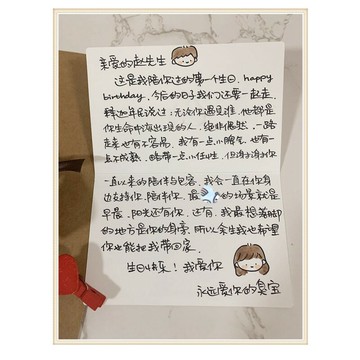 亲爱的赵先生
这是我陪你过的第一个生日，happy
birthday，今后的日子我们还要一起走，
释迦牟尼说过：无论你遇见谁，他都是
你生命中该出现的人，绝非偶然，一路
走来也有不容易，我有一点小脾气，也有一
点不成熟，略带一点小任性，但谢谢你
一直以来的陪伴与包容，我会一直在你身
边支持你，陪伴你，最 的场景就是
早晨，阳光还有你，还有，我最想
的地方是你的身旁，所以余生我也希望
你也能把我带回家，
生日快乐！我爱你
永远爱你的臭宝